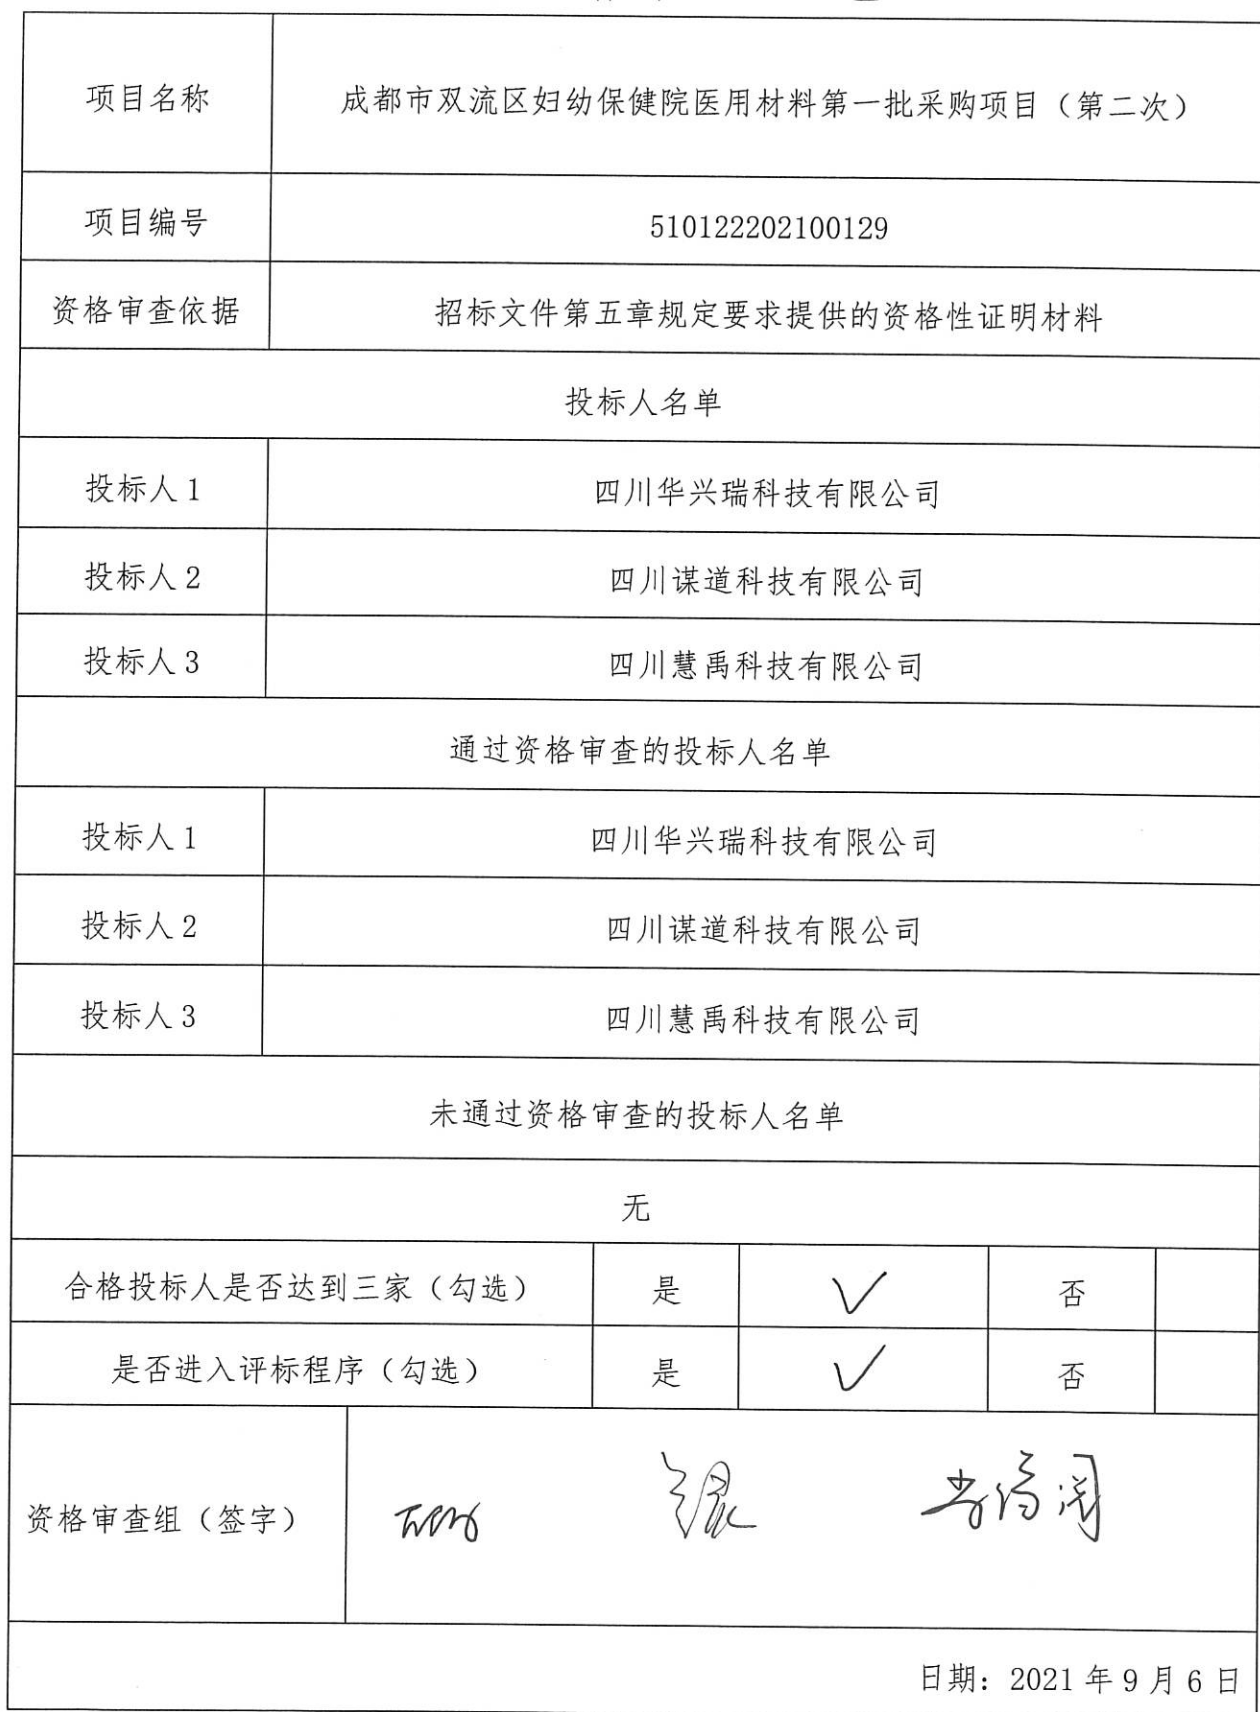 项目名称
成都市双流区妇幼保健院医用材料第一批采购项目（第二次）
项目编号
510122202100129
资格审查依据
招标文件第五章规定要求提供的资格性证明材料
投标人名单
投标人 1
四川华兴瑞科技有限公司
投标人 2
四川谋道科技有限公司
投标人 3
四川慧禹科技有限公司
通过资格审查的投标人名单
投标人 1
四川华兴瑞科技有限公司
投标人 2
四川谋道科技有限公司
投标人 3
四川慧禹科技有限公司
未通过资格审查的投标人名单
无
合格投标人是否达到三家（勾选） 是 √ 否
是否进入评标程序（勾选） 是 √ 否
资格审查组（签字）
日期：2021 年 9 月 6 日